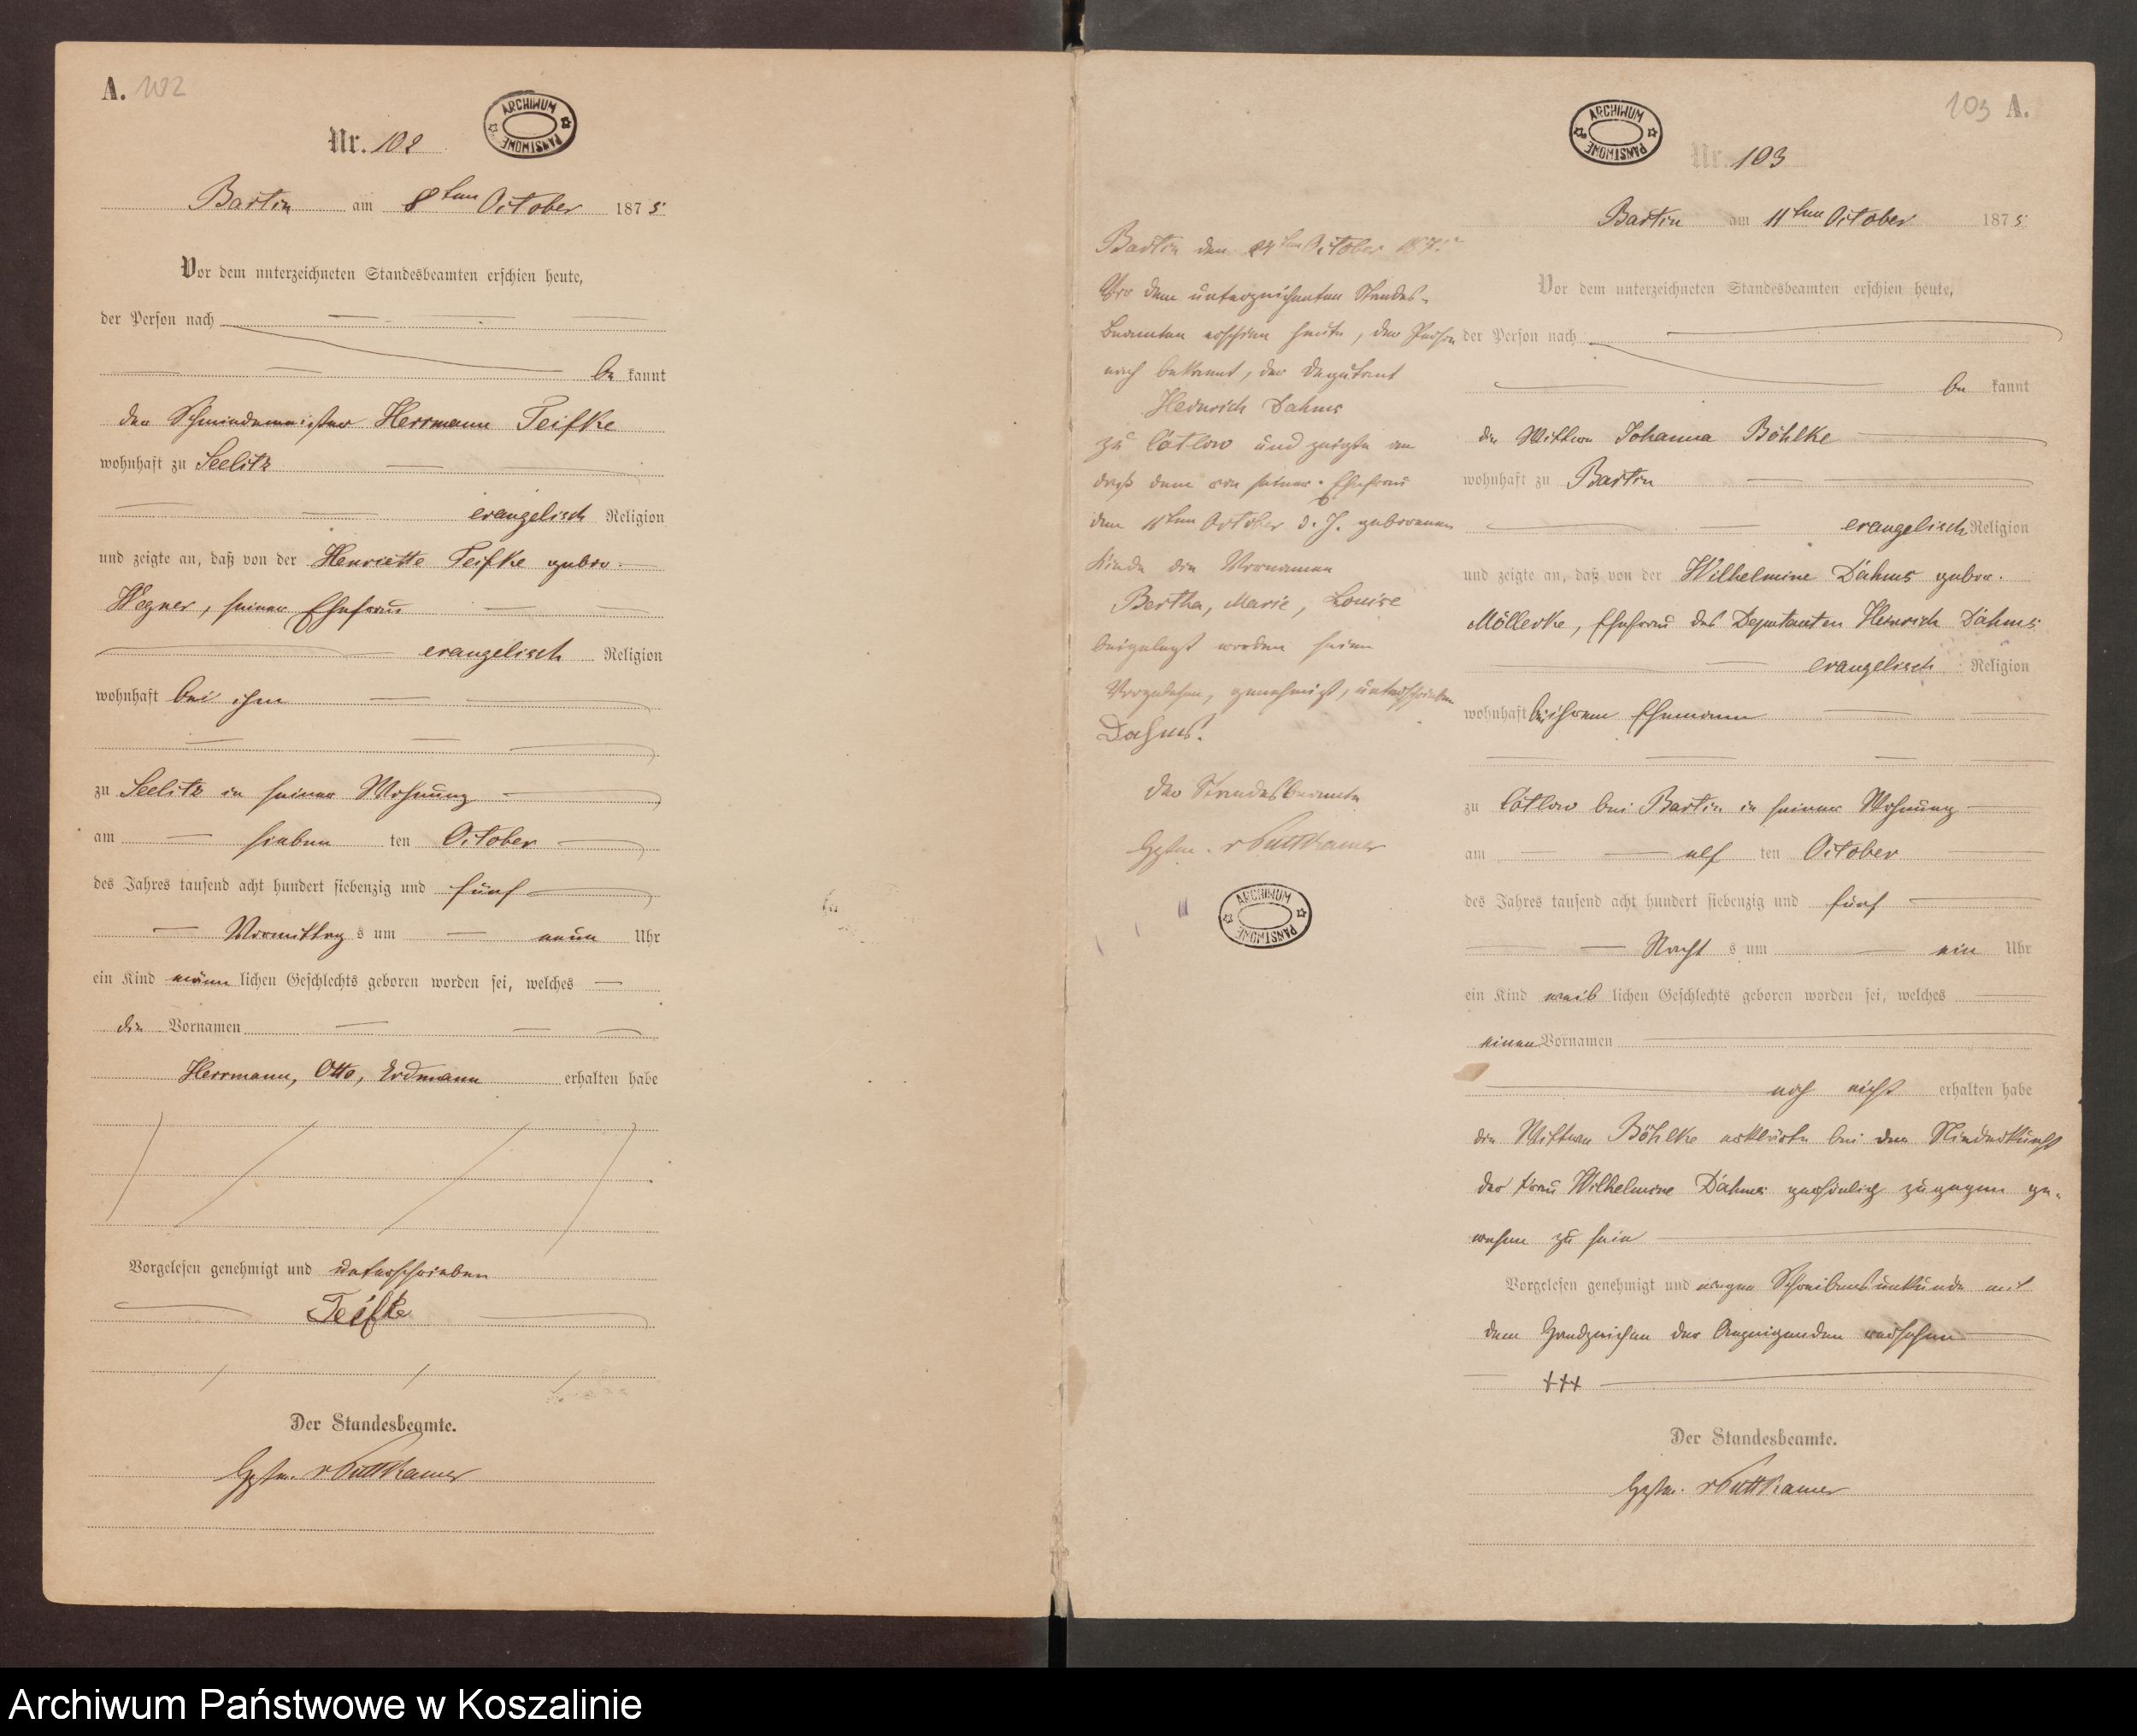 A. 102
ARCHIWUM PAŃSTWOWE
Nr. 102
Bartin am 8ten October 1875
Vor dem unterzeichneten Standesbeamten erschien heute,
der Person nach
be kannt
der Schmiedemeister Herrmann Teifke
wohnhaft zu Seelitz
evangelisch Religion
und zeigte an, daß von der Henriette Teifke gebor.
Wegner, seiner Ehefrau
evangelisch Religion
wohnhaft bei ihm
zu Seelitz in seiner Wohnung
am sieben ten October
des Jahres tausend acht hundert siebenzig und fünf
Vormittag s um neun Uhr
ein Kind männ lichen Geschlechts geboren worden sei, welches
die Vornamen
Herrmann, Otto, Erdmann erhalten habe
Vorgelesen genehmigt und unterschrieben
Teifke
Der Standesbeamte.
v Puttkamer
Bartin den 24ten October 1875
Vor dem unterzeichneten Standes-
Beamten erschien heute, der Person
nach bekannt, der Deputant
Heinrich Dahms
zu Cötlow und zeigte an
daß dem von seiner Ehefrau
den 11ten October d. J. geborenen
Kinde die Vornamen
Bertha, Marie, Louise
beigelegt worden seien
Vorgelesen, genehmigt, unterschrieben
Dahms.
Der Standesbeamte
v Puttkamer
ARCHIWUM PAŃSTWOWE
103 A.
ARCHIWUM PAŃSTWOWE
Nr. 103
Bartin am 11ten October 1875
Vor dem unterzeichneten Standesbeamten erschien heute,
der Person nach
be kannt
die Wittwe Johanna Böhlke
wohnhaft zu Bartin
evangelisch Religion
und zeigte an, daß von der Wilhelmine Dahms gebor.
Möllerke, Ehefrau des Deputanten Heinrich Dahms
evangelisch Religion
wohnhaft bei ihrem Ehemann
zu Cötlow bei Bartin in seiner Wohnung
am elf ten October
des Jahres tausend acht hundert siebenzig und fünf
Nacht s um ein Uhr
ein Kind weib lichen Geschlechts geboren worden sei, welches
einen Vornamen
noch nicht erhalten habe
die Wittwe Böhlke erklärte bei der Niederkunft
der Frau Wilhelmine Dahms persönlich zugegen ge-
wesen zu sein
Vorgelesen genehmigt und wegen Schreibensunkunde mit
dem Handzeichen der Anzeigenden versehen
+++
Der Standesbeamte.
v Puttkamer
Archiwum Państwowe w Koszalinie